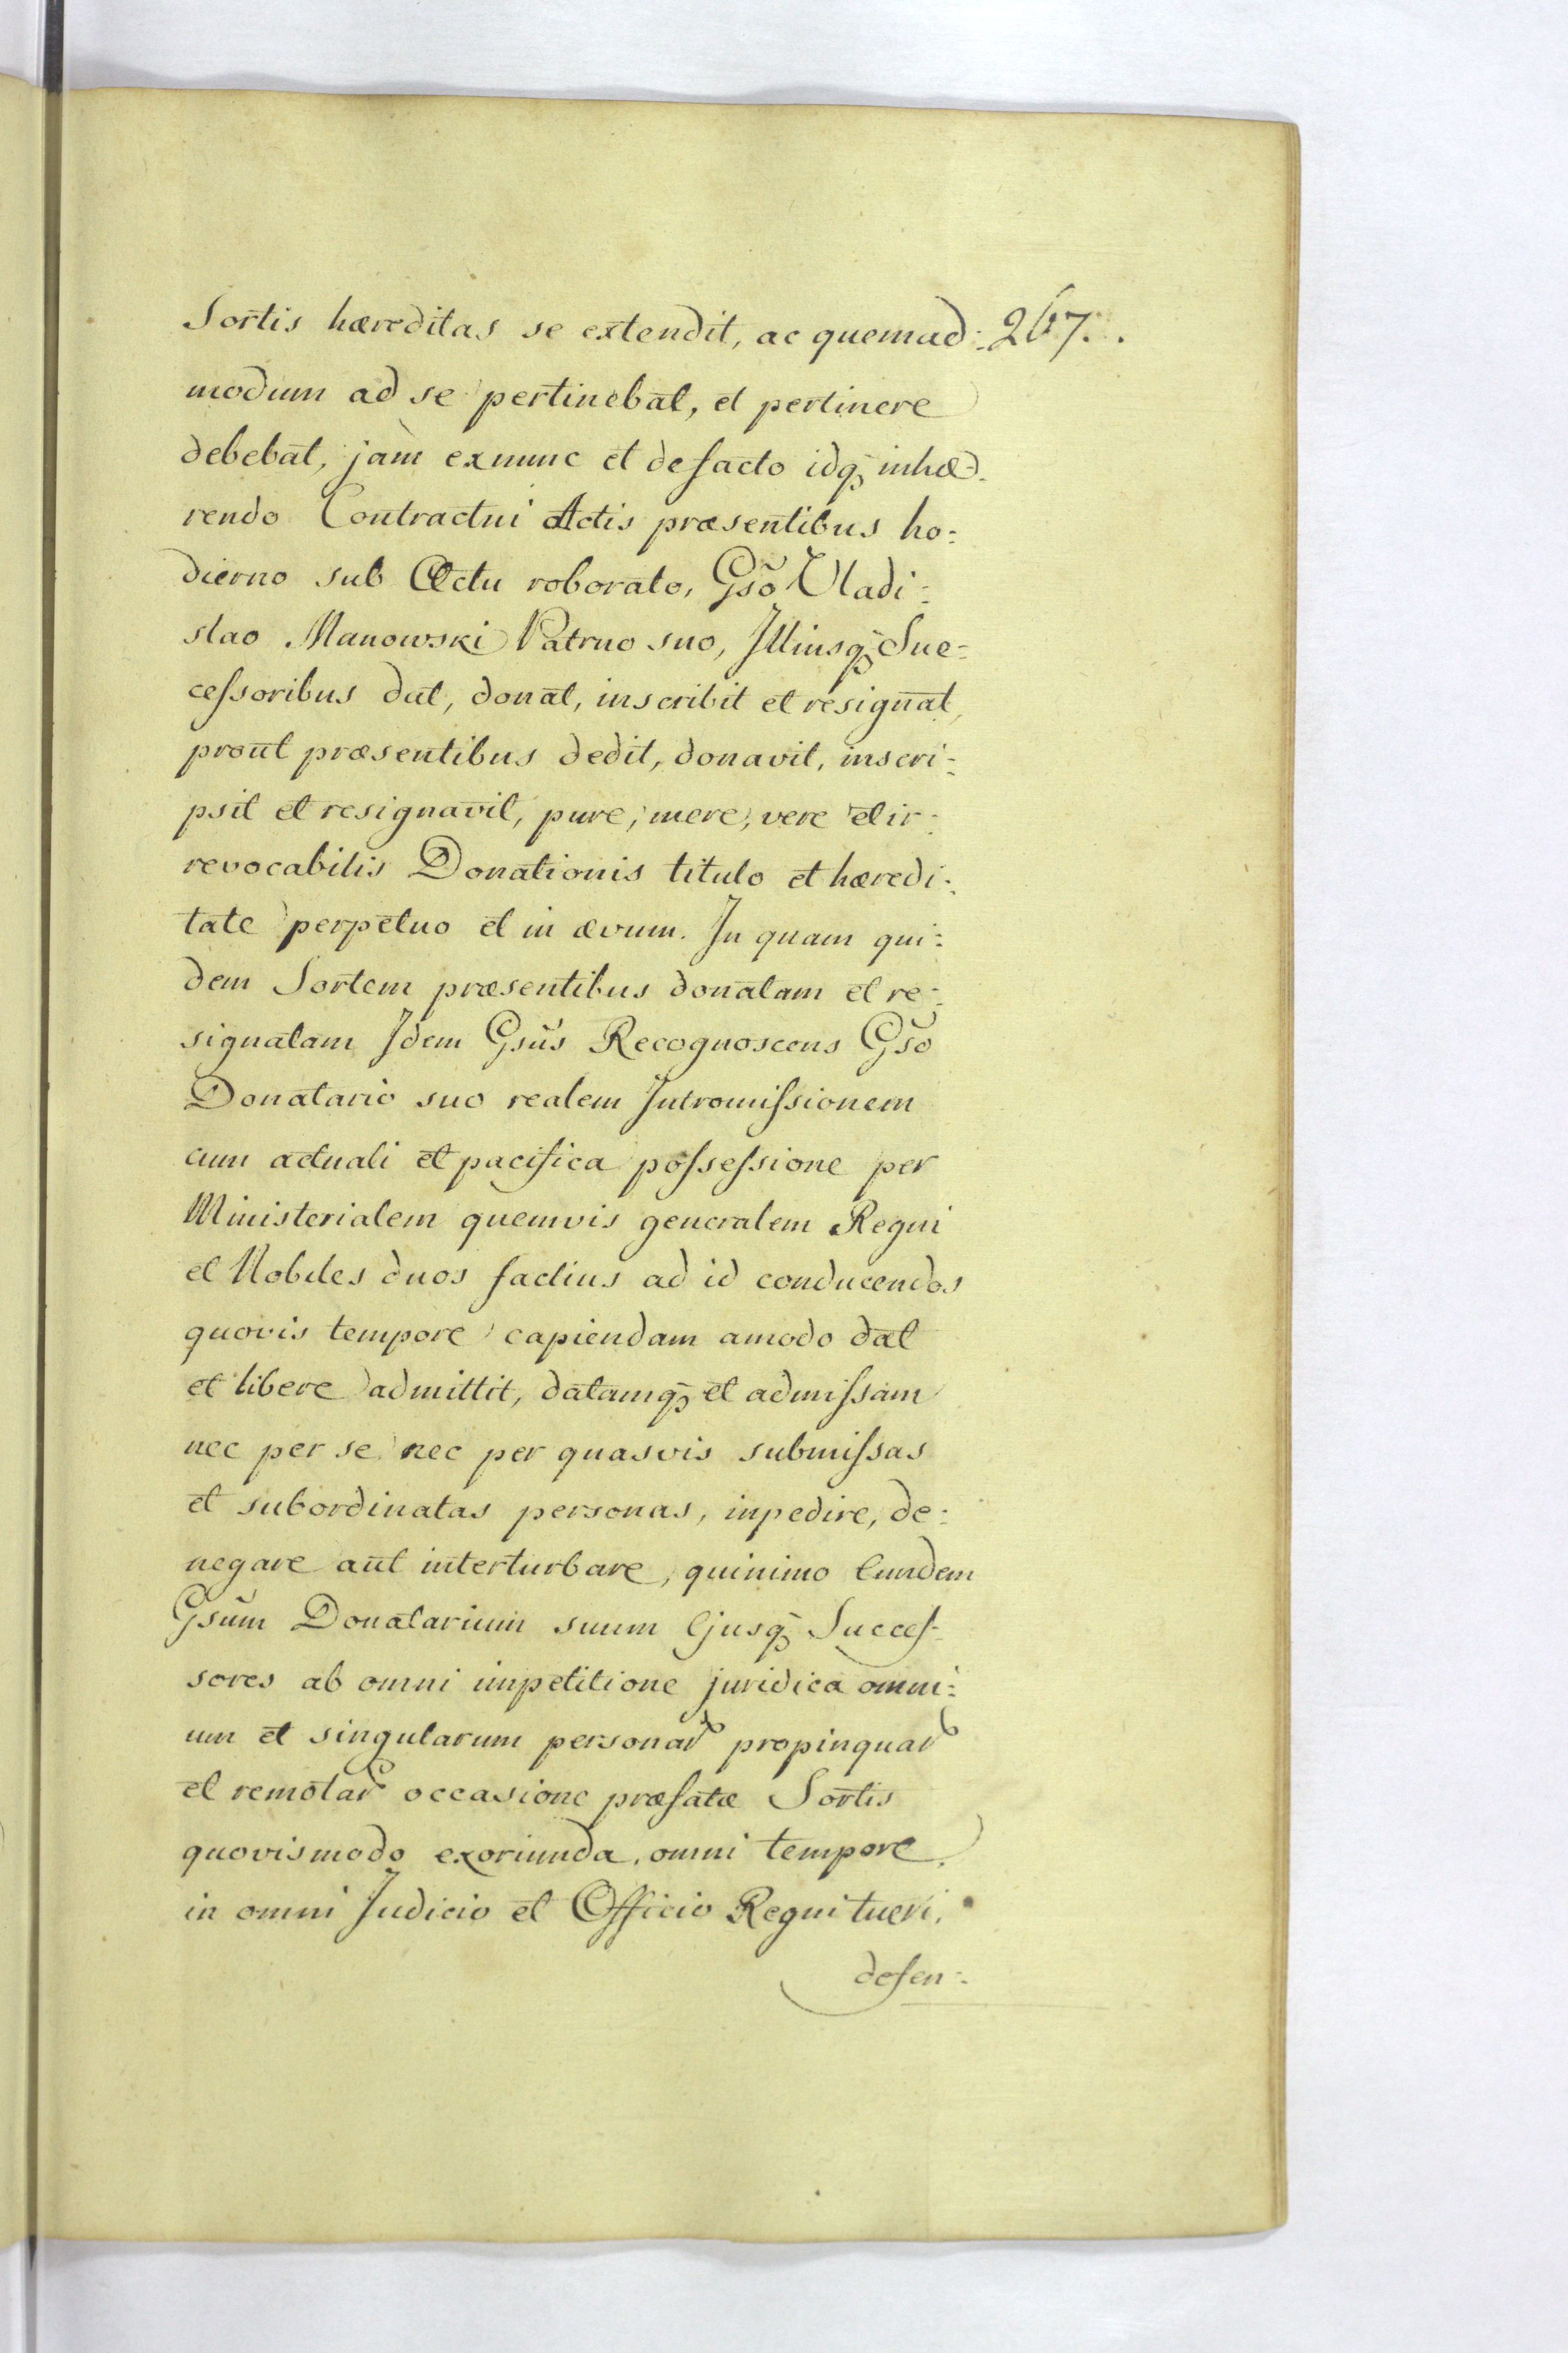 Sortis hæreditas se extendit, ac quemad: 267.
modum ad se pertinebat, et pertinere
debebat, jam exnunc et defacto idq; inhæ-
rendo Contractui Actis præsentibus ho:
dierno sub Actu roborato, Gso Vladi:
slao Manowski Patruo suo, Illiusq; Suc:
cessoribus dat, donat, inscribit et resignat,
prout præsentibus dedit, donavit, inscri:
psit et resignavit, pure, mere, vere et ir:
revocabilis Donationis titulo et hæredi:
tate perpetuo et in ævum. In quam qui:
dem Sortem præsentibus donatam et re:
signatam Idem Gsus Recognoscens Gso
Donatario suo realem Intromissionem
cum actuali et pacifica possessione per
Ministerialem quemvis generalem Regni
et Nobiles duos factius ad id conducendos
quovis tempore capiendam amodo dat
et libere admittit, datamq; et admissam
nec per se nec per quasvis submissas
et subordinatas personas, inpedire, de:
negare aut interturbare, quinimo Eundem
Gsum Donatarium suum Ejusq; Succes-
sores ab omni impetitione juridica omni:
um et singularum personar propinquar
et remotar occasione præfatæ Sortis
quovismodo exoriunda, omni tempore
in omni Judicio et Officio Regni tueri,
defen: